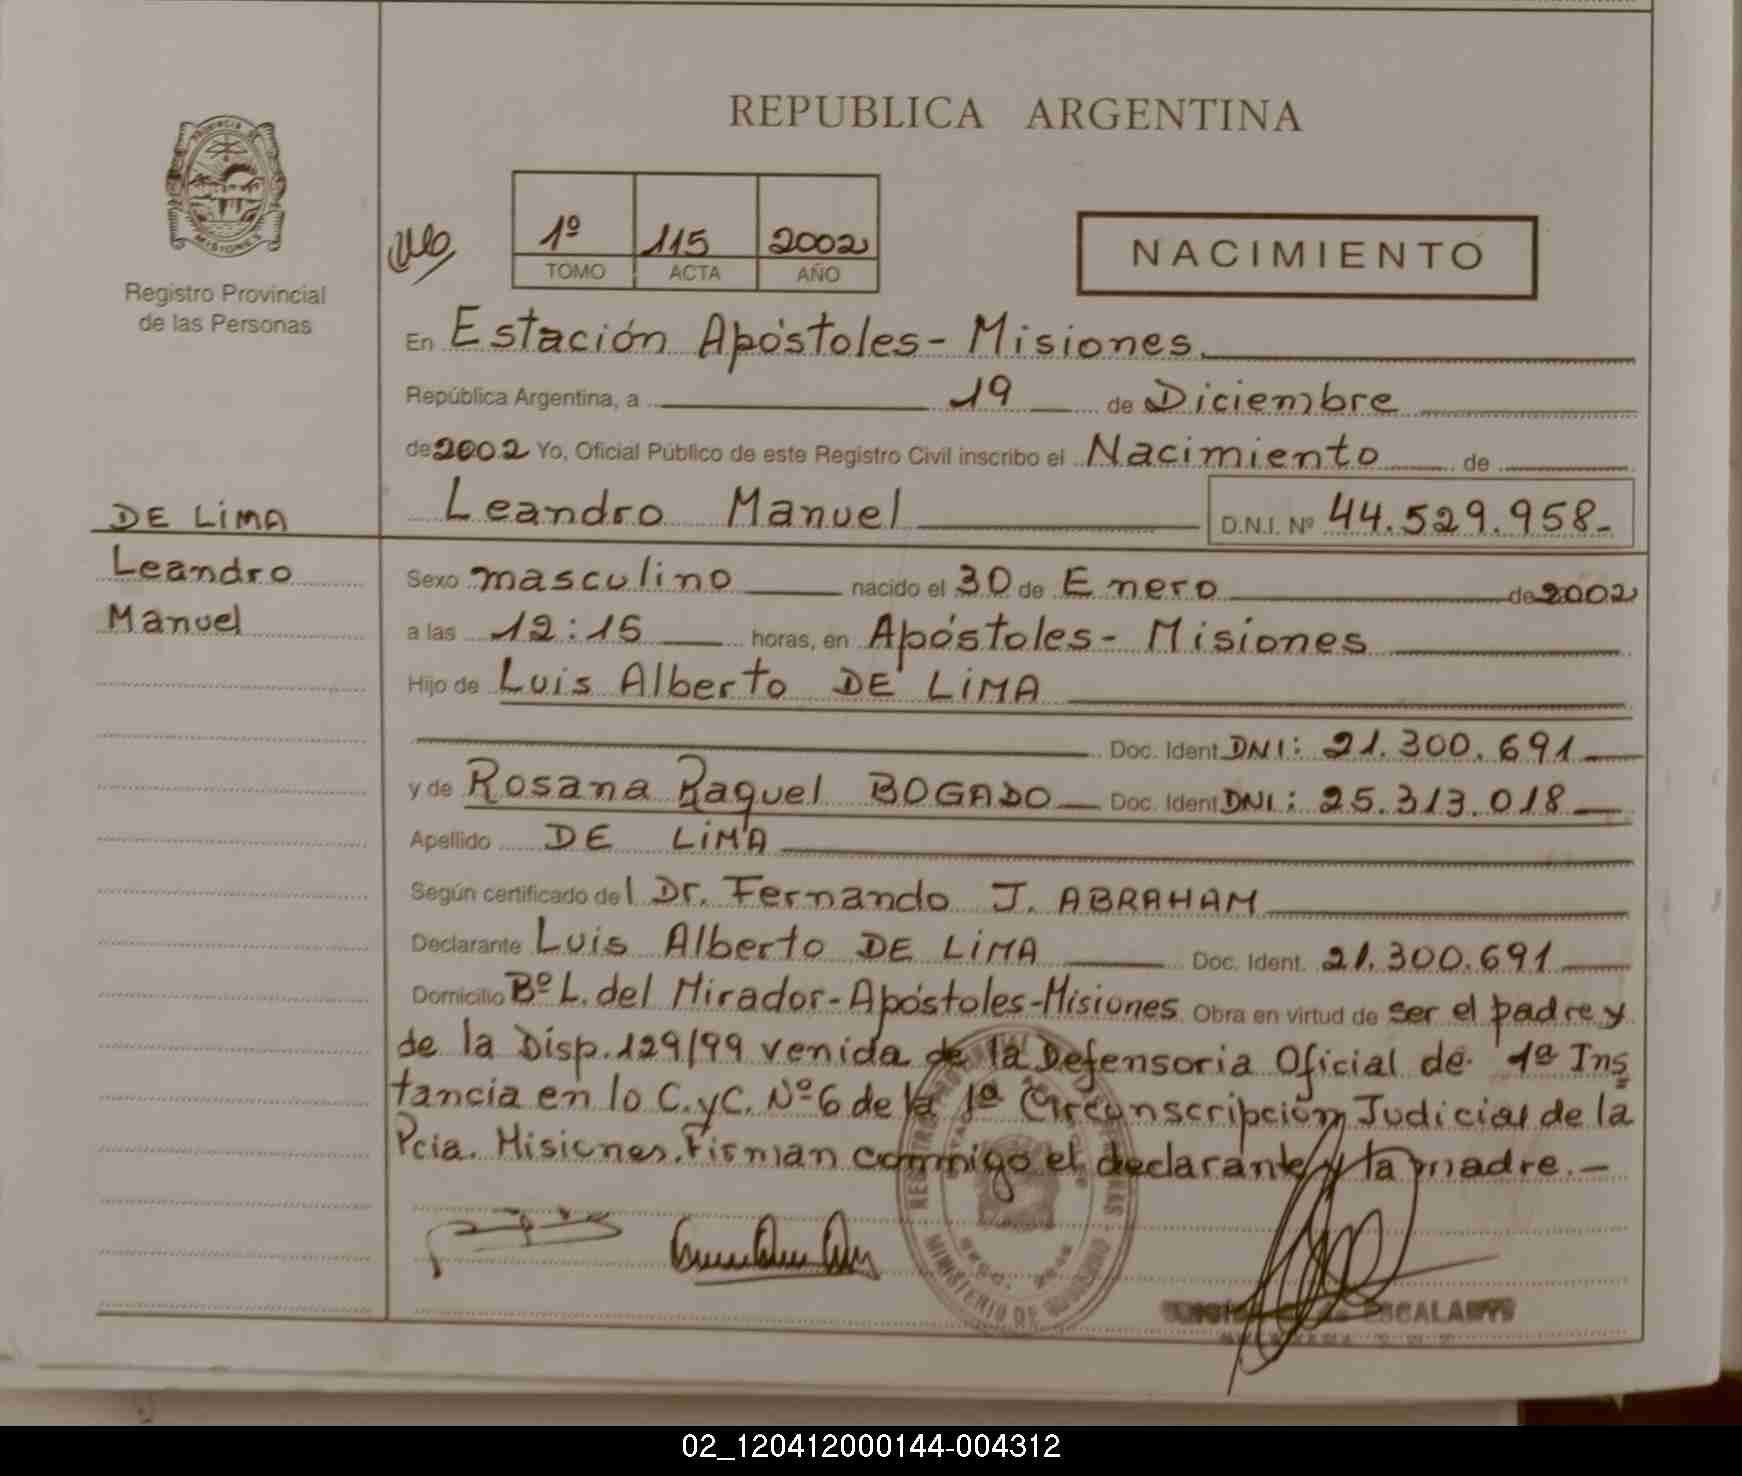 REPUBLICA ARGENTINA
PROVINCIA DE MISIONES
Registro Provincial
de las Personas
1º 115 2002
TOMO ACTA AÑO
NACIMIENTO
En Estación Apóstoles - Misiones
República Argentina, a 19 de Diciembre
de 2002 Yo, Oficial Público de este Registro Civil inscribo el Nacimiento de
Leandro Manuel D.N.I. Nº 44.529.958-
DE LiMA
Leandro
Manuel
Sexo masculino nacido el 30 de Enero de 2002
a las 12:15 horas, en Apóstoles - Misiones
Hijo de Luis Alberto DE LiMA
Doc. Ident. DNI: 21.300.691
y de Rosana Raquel BOGADO Doc. Ident. DNI: 25.313.018
Apellido DE LiMA
Según certificado del Dr. Fernando J. ABRAHAM
Declarante Luis Alberto DE LiMA Doc. Ident. 21.300.691
Domicilio Bº L. del Mirador - Apóstoles - Misiones Obra en virtud de ser el padre y
de la Disp. 129/99 venida de la Defensoria Oficial de 1ª Ins
tancia en lo C. y C. Nº 6 de la 1ª Circunscripción Judicial de la
Pcia. Misiones. Firman conmigo el declarante y la madre. -
MINISTERIO DE GOBIERNO
ESCALANTE
02_120412000144-004312